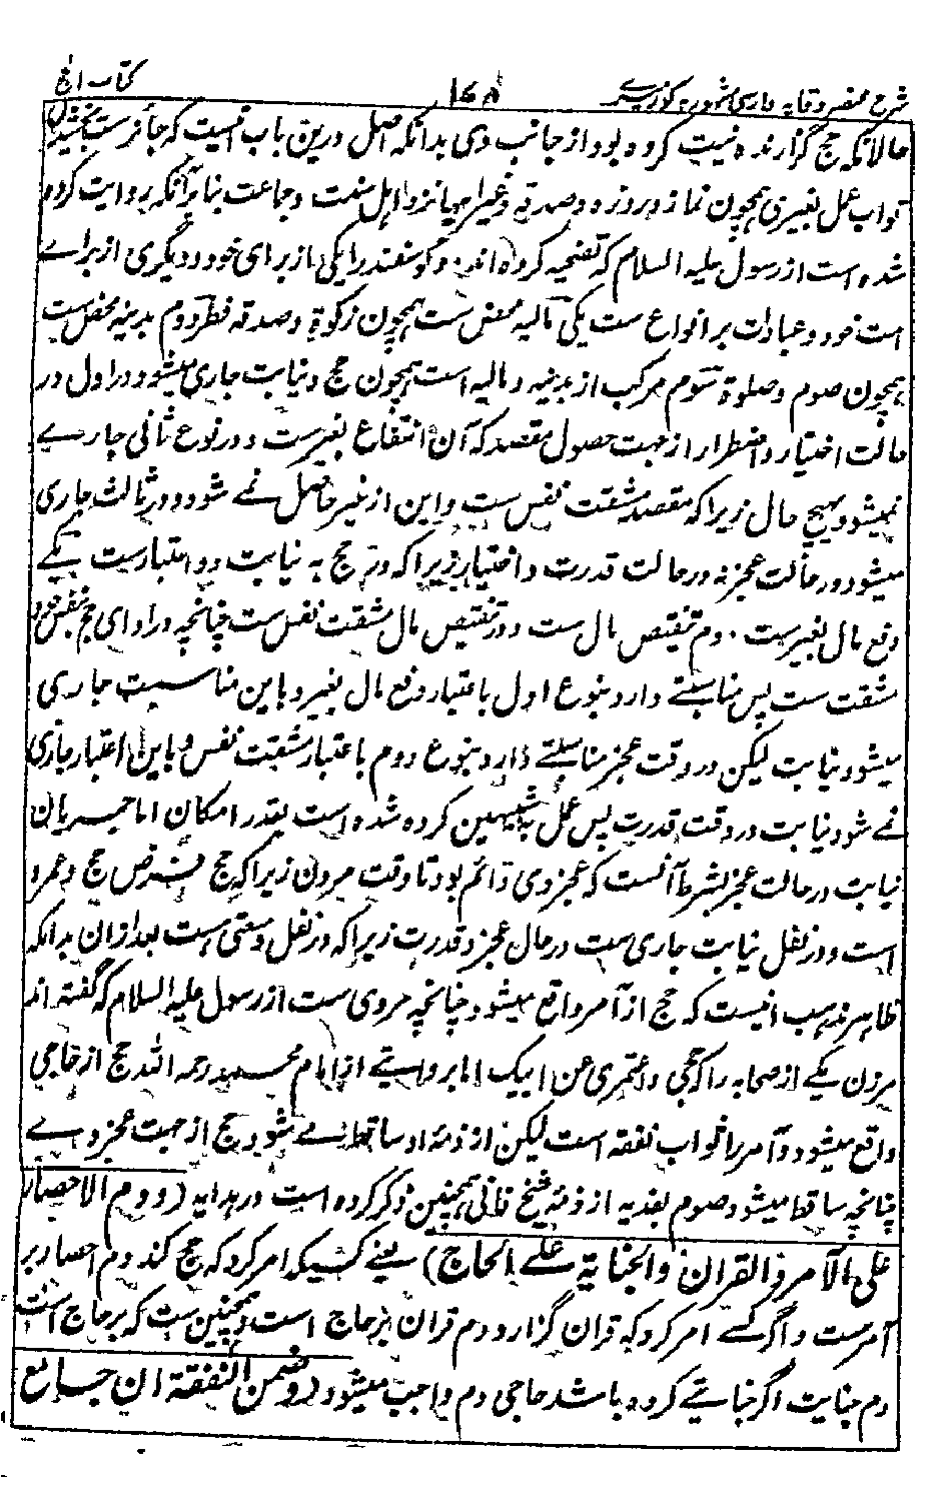 شرح مختصر وقایه فارسی مشهور به کور میری ۱۶۸ کتاب الحج
حالانکه حج گزارنده نیت کرده بود از جانب وی بدانکه اصل درین باب آنست که جائز ست بخشیدن
ثواب عمل بغیری همچون نماز و روزه و صدقه و غیر اینها نزد اهل سنت و جماعت بنا بر آنکه روایت کرده
شده است از رسول علیه السلام که تضحیه کرده اند دو گوسفند را یکی از برای خود و دیگری از برای
امت خود و عبادات بر انواع ست یکی مالیه محض ست همچون زکوة و صدقه فطر دوم بدنیه محض ست
همچون صوم و صلوة سوم مرکب از بدنیه و مالیه است همچون حج و نیابت جاری میشود در اول در
حالت اختیار و اضطرار از جهت حصول مقصد که آن انتفاع بغیرست و در نوع ثانی جاری
نمیشود بهیچ حال زیرا که مقصد مشقت نفس ست و این از غیر حاصل نمی شود و در ثالث جاری
میشود در حالت عجز نه در حالت قدرت و اختیار زیرا که در حج به نیابت دو اعتبارست یکے
دفع مال بغیرست دوم تنقیص مال ست و در تنقیص مال مشقت نفس ست چنانچه در ادای حج بنفس خود
مشقت ست پس مناسبتے دارد بنوع اول باعتبار دفع مال بغیر و باین مناسبت جاری
میشود نیابت لیکن در وقت عجز مناسبتے دارد بنوع دوم باعتبار مشقت نفس و باین اعتبار جاری
نمے شود نیابت در وقت قدرت پس عمل بشبهین کرده شده است بقدر امکان اما جریان
نیابت در حالت عجز بشرط آنست که عجز وی دائم بود تا وقت مردن زیرا که حج فرض حج عمر
است و در نفل نیابت جاری ست در حال عجز و قدرت زیرا که در نفل وسعتی است بعد ازان بدانکه
ظاهر مذهب اینست که حج از آمر واقع میشود چنانچه مروی ست از رسول علیه السلام که گفته اند
مرزن یکے از صحابه را که حجی و اعتمری عن ابیک اما بروایتے از امام محمد رحمه الله حج از حاجی
واقع میشود و آمر را ثواب نفقه است لیکن از ذمهٔ او ساقط می شود حج از جهت عجز وے
چنانچه ساقط میشود صوم بفدیه از ذمهٔ شیخ فانی همچنین ذکر کرده است در هدایه (و دم الاحصار
علی الآمر و القران و الجنایة علے الحاج) یعنے کسیکه امر کرد که حج کند دم احصار بر
آمرست و اگر کسے امر کرد که قران گزارد دم قران بر حاج است و همچنین ست که بر حاج است
دم جنایت اگر جنایتے کرده باشد حاجی دم واجب میشود (و ضمن النفقة ان جامع